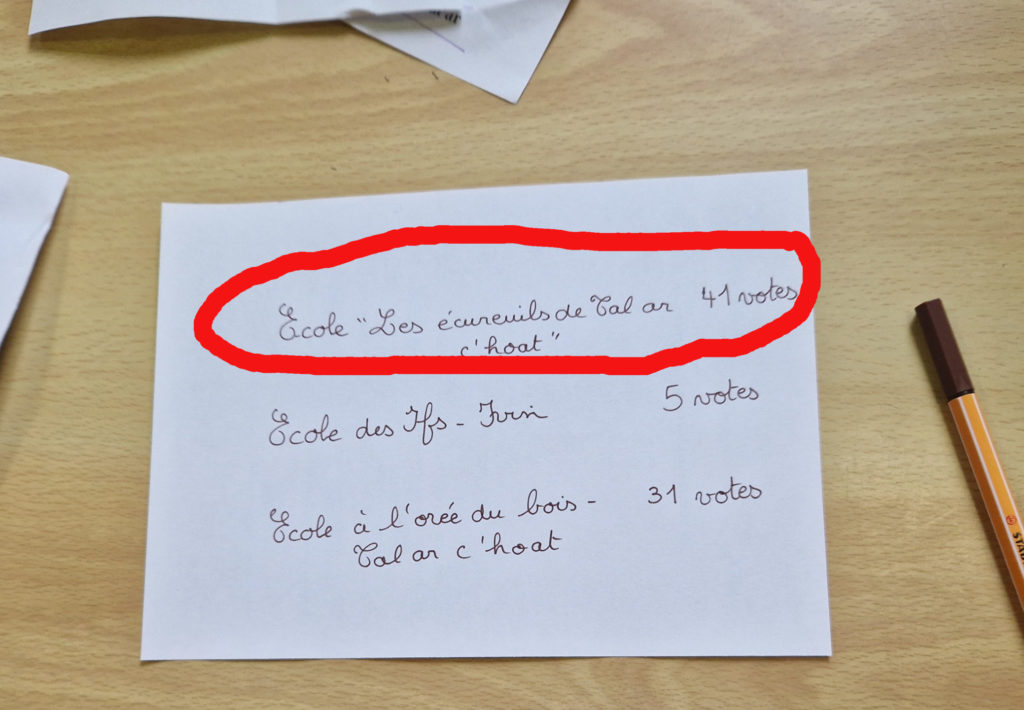 École "Les écureuils de Tal ar 41 votes
c'hoat"
École des Ifs - Ivin 5 votes
École à l'orée du bois - 31 votes
Tal ar c'hoat